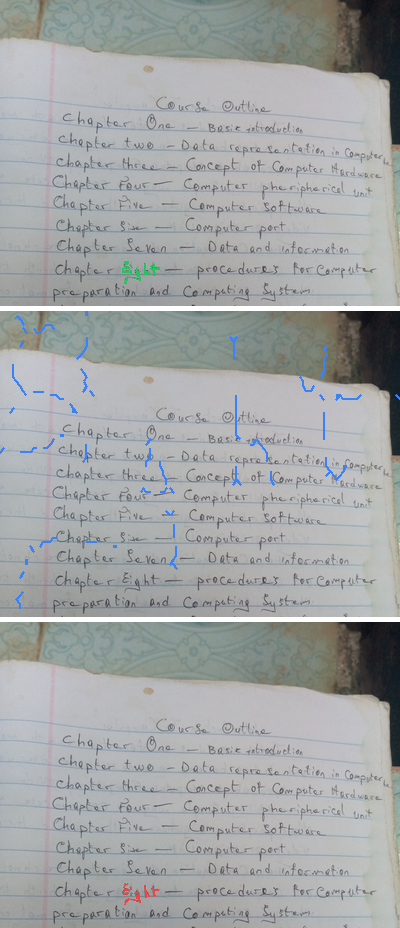 Course Outline
Chapter One – Basic introduction
Chapter two – Data representation in Computer
Chapter three – Concept of Computer Hardware
Chapter Four – Computer pheripherical unit
Chapter Five – Computer Software
Chapter Six – Computer port
Chapter Seven – Data and information
Chapter Eight – procedures for Computer
preparation and Computing System.
Course Outline
Chapter One – Basic introduction
Chapter two – Data representation in Computer
Chapter three – Concept of Computer Hardware
Chapter Four – Computer pheripherical unit
Chapter Five – Computer Software
Chapter Six – Computer port
Chapter Seven – Data and information
Chapter Eight – procedures for Computer
preparation and Computing System.
Course Outline
Chapter One – Basic introduction
Chapter two – Data representation in Computer
Chapter three – Concept of Computer Hardware
Chapter Four – Computer pheripherical unit
Chapter Five – Computer Software
Chapter Six – Computer port
Chapter Seven – Data and information
Chapter Eight – procedures for Computer
preparation and Computing System.